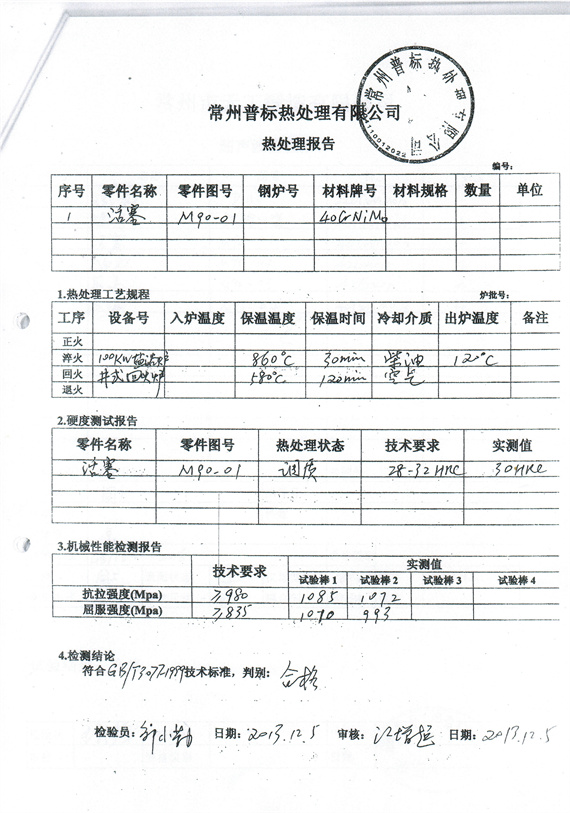 常州普标热处理有限公司
常州普标热处理有限公司
热处理报告
编号:
序号 零件名称 零件图号 钢炉号 材料牌号 材料规格 数量 单位
1 活塞 M90-01 40CrNiMo
1.热处理工艺规程 炉批号:
工序 设备号 入炉温度 保温温度 保温时间 冷却介质 出炉温度 备注
正火
淬火 100KW盐浴炉 860℃ 30min 柴油 120℃
回火 井式回火炉 580℃ 120min 空气
退火
2.硬度测试报告
零件名称 零件图号 热处理状态 技术要求 实测值
活塞 M90-01 调质 28-32HRC 30HRC
3.机械性能检测报告
技术要求 实测值
试验棒1 试验棒2 试验棒3 试验棒4
抗拉强度(Mpa) ≥980 1085 1072
屈服强度(Mpa) ≥835 1010 993
4.检测结论
符合GB/T3077-1999技术标准，判别: 合格
检验员: 日期: 2013.12.5 审核: 江增超 日期: 2013.12.5